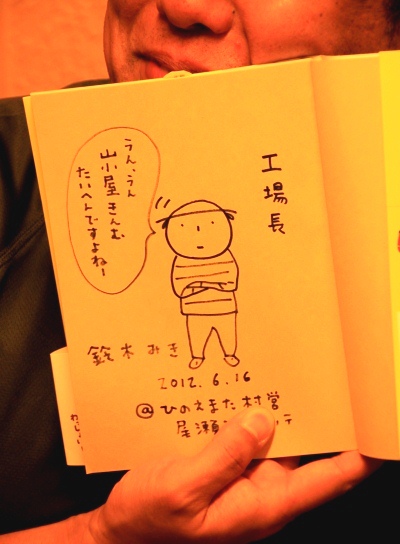 工場長
うん、うん
山小屋きんむ
たいへんですよねー
鈴木みき
2012.6.16
@ひのえまた村営
尾瀬